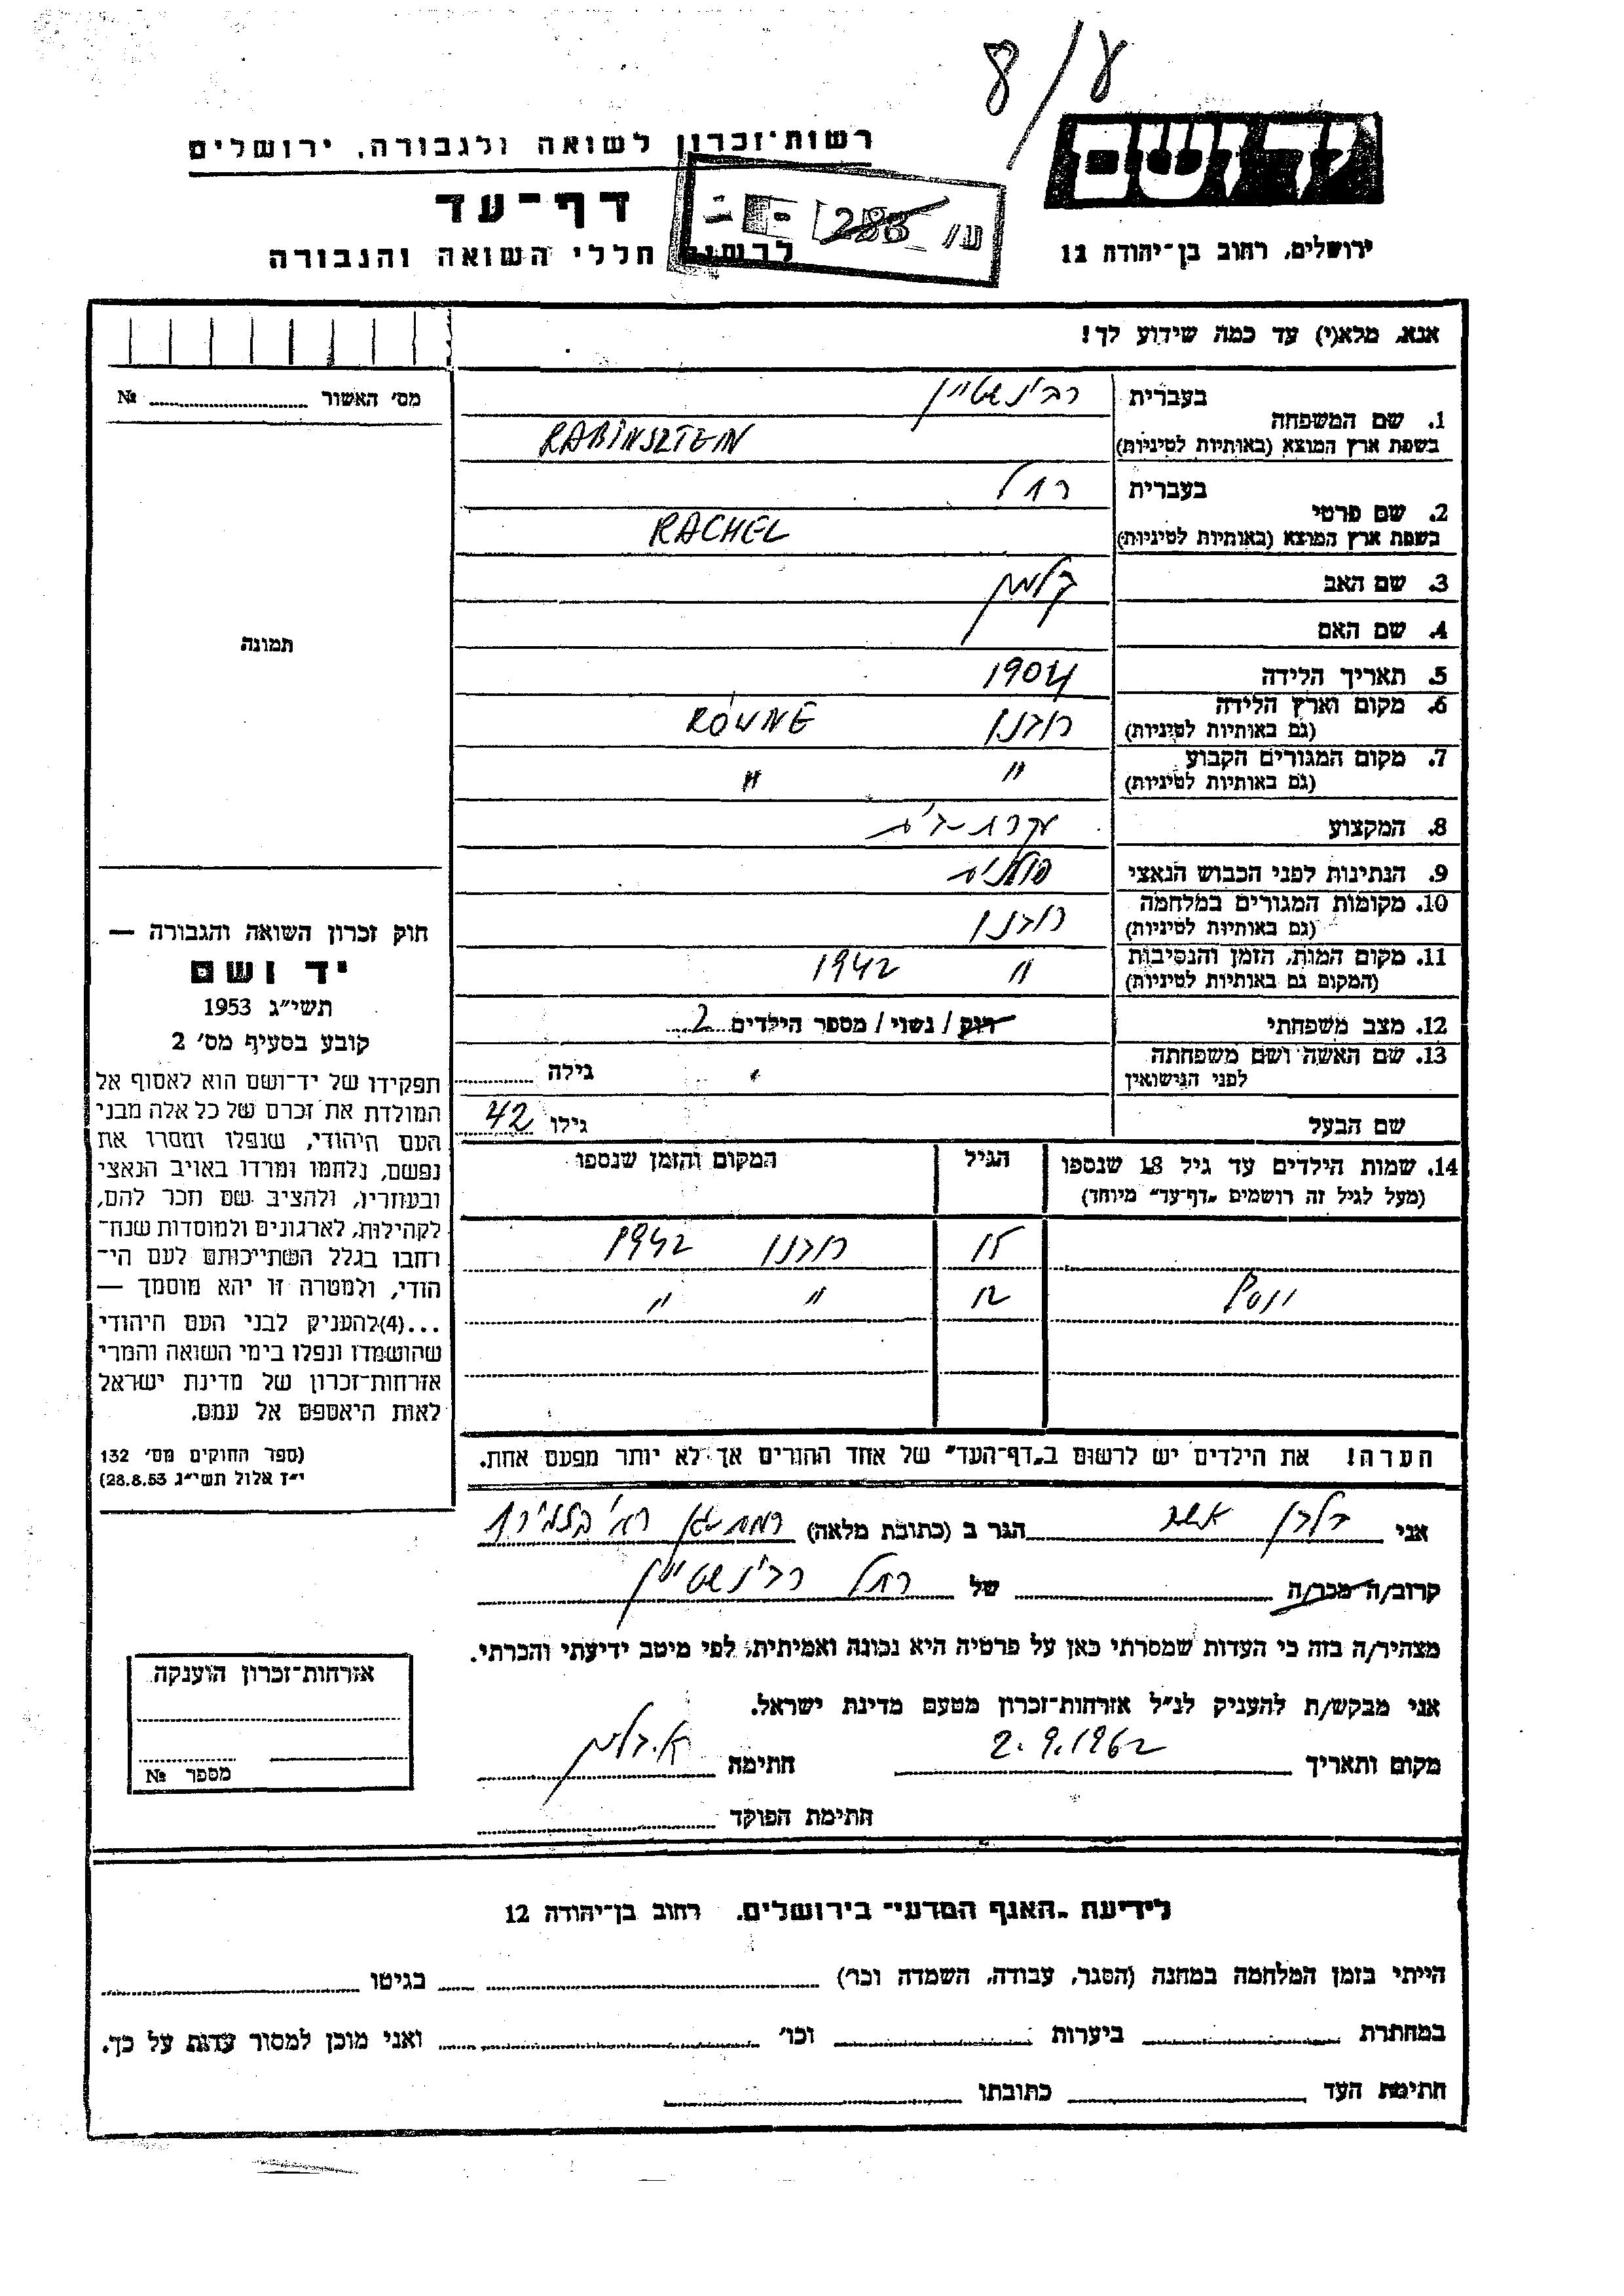 ע/8
יד ושם
רשות־זכרון לשואה ולגבורה, ירושלים
דף־עד
לרשום חללי השואה והגבורה
ירושלים, רחוב בן־יהודה 12
אנא, מלא(י) עד כמה שידוע לך!
מס׳ האשור № 
1. שם המשפחה בעברית רבינשטיין
בשפת ארץ המוצא (באותיות לטיניות) RABINSZTEIN
2. שם פרטי בעברית רחל
בשפת ארץ המוצא (באותיות לטיניות) RACHEL
3. שם האב קלמן
4. שם האם
תמונה
5. תאריך הלידה 1904
6. מקום וארץ הלידה רובנו RÓWNE
(גם באותיות לטיניות)
7. מקום המגורים הקבוע " "
(גם באותיות לטיניות)
8. המקצוע עקרת-בית
9. הנתינות לפני הכבוש הנאצי פולנית
10. מקומות המגורים במלחמה רובנו
(גם באותיות לטיניות)
11. מקום המות, הזמן והנסיבות " 1942
(המקום גם באותיות לטיניות)
12. מצב משפחתי רוק / נשוי / מספר הילדים 2
13. שם האשה ושם משפחתה
לפני הנישואין גילה
שם הבעל גילו 42
14. שמות הילדים עד גיל 18 שנספו הגיל המקום והזמן שנספו
(מעל לגיל זה רושמים „דף־עד״ מיוחד)
15 רובנו 1942
יוסף 12 " "
חוק זכרון השואה והגבורה —
יד ושם
תשי״ג 1953
קובע בסעיף מס׳ 2
תפקידו של יד־ושם הוא לאסוף אל
המולדת את זכרם של כל אלה מבני
העם היהודי, שנפלו ומסרו את
נפשם, נלחמו ומרדו באויב הנאצי
ובעוזריו, ולהציב שם וזכר להם,
לקהילות, לארגונים ולמוסדות שנח־
רחבו בגלל השתייכותם לעם הי־
הודי, ולמטרה זו יהא מוסמך —
...(4)להעניק לבני העם היהודי
שהושמדו ונפלו בימי השואה והמרי
אזרחות־זכרון של מדינת ישראל
לאות היאספם אל עמם.
(ספר החוקים מס׳ 132
י״ז אלול תשי״ג 28.8.53)
הערה! את הילדים יש לרשום ב„דף־העד״ של אחד ההורים אך לא יותר מפעם אחת.
אני אשר הגר ב (כתובת מלאה) רמת גן
קרוב/ה מכר/ה של רחל רבינשטיין
מצהיר/ה בזה כי העדות שמסרתי כאן על פרטיה היא נכונה ואמיתית, לפי מיטב ידיעתי והכרתי.
אני מבקש/ת להעניק לנ״ל אזרחות־זכרון מטעם מדינת ישראל.
מקום ותאריך 2.9.1962 חתימה
חתימת הפוקד
אזרחות־זכרון הוענקה
מספר №
לידיעת „האגף המדעי״ בירושלים, רחוב בן־יהודה 12
הייתי בזמן המלחמה במחנה (הסגר, עבודה, השמדה וכו׳) בגיטו
במחתרת ביערות וכו׳ ואני מוכן למסור עדות על כך.
חתימת העד כתובתו